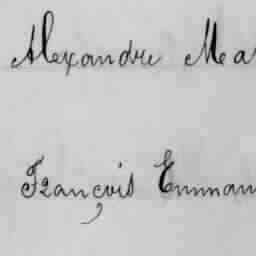 Alexandre Ma
François Emman